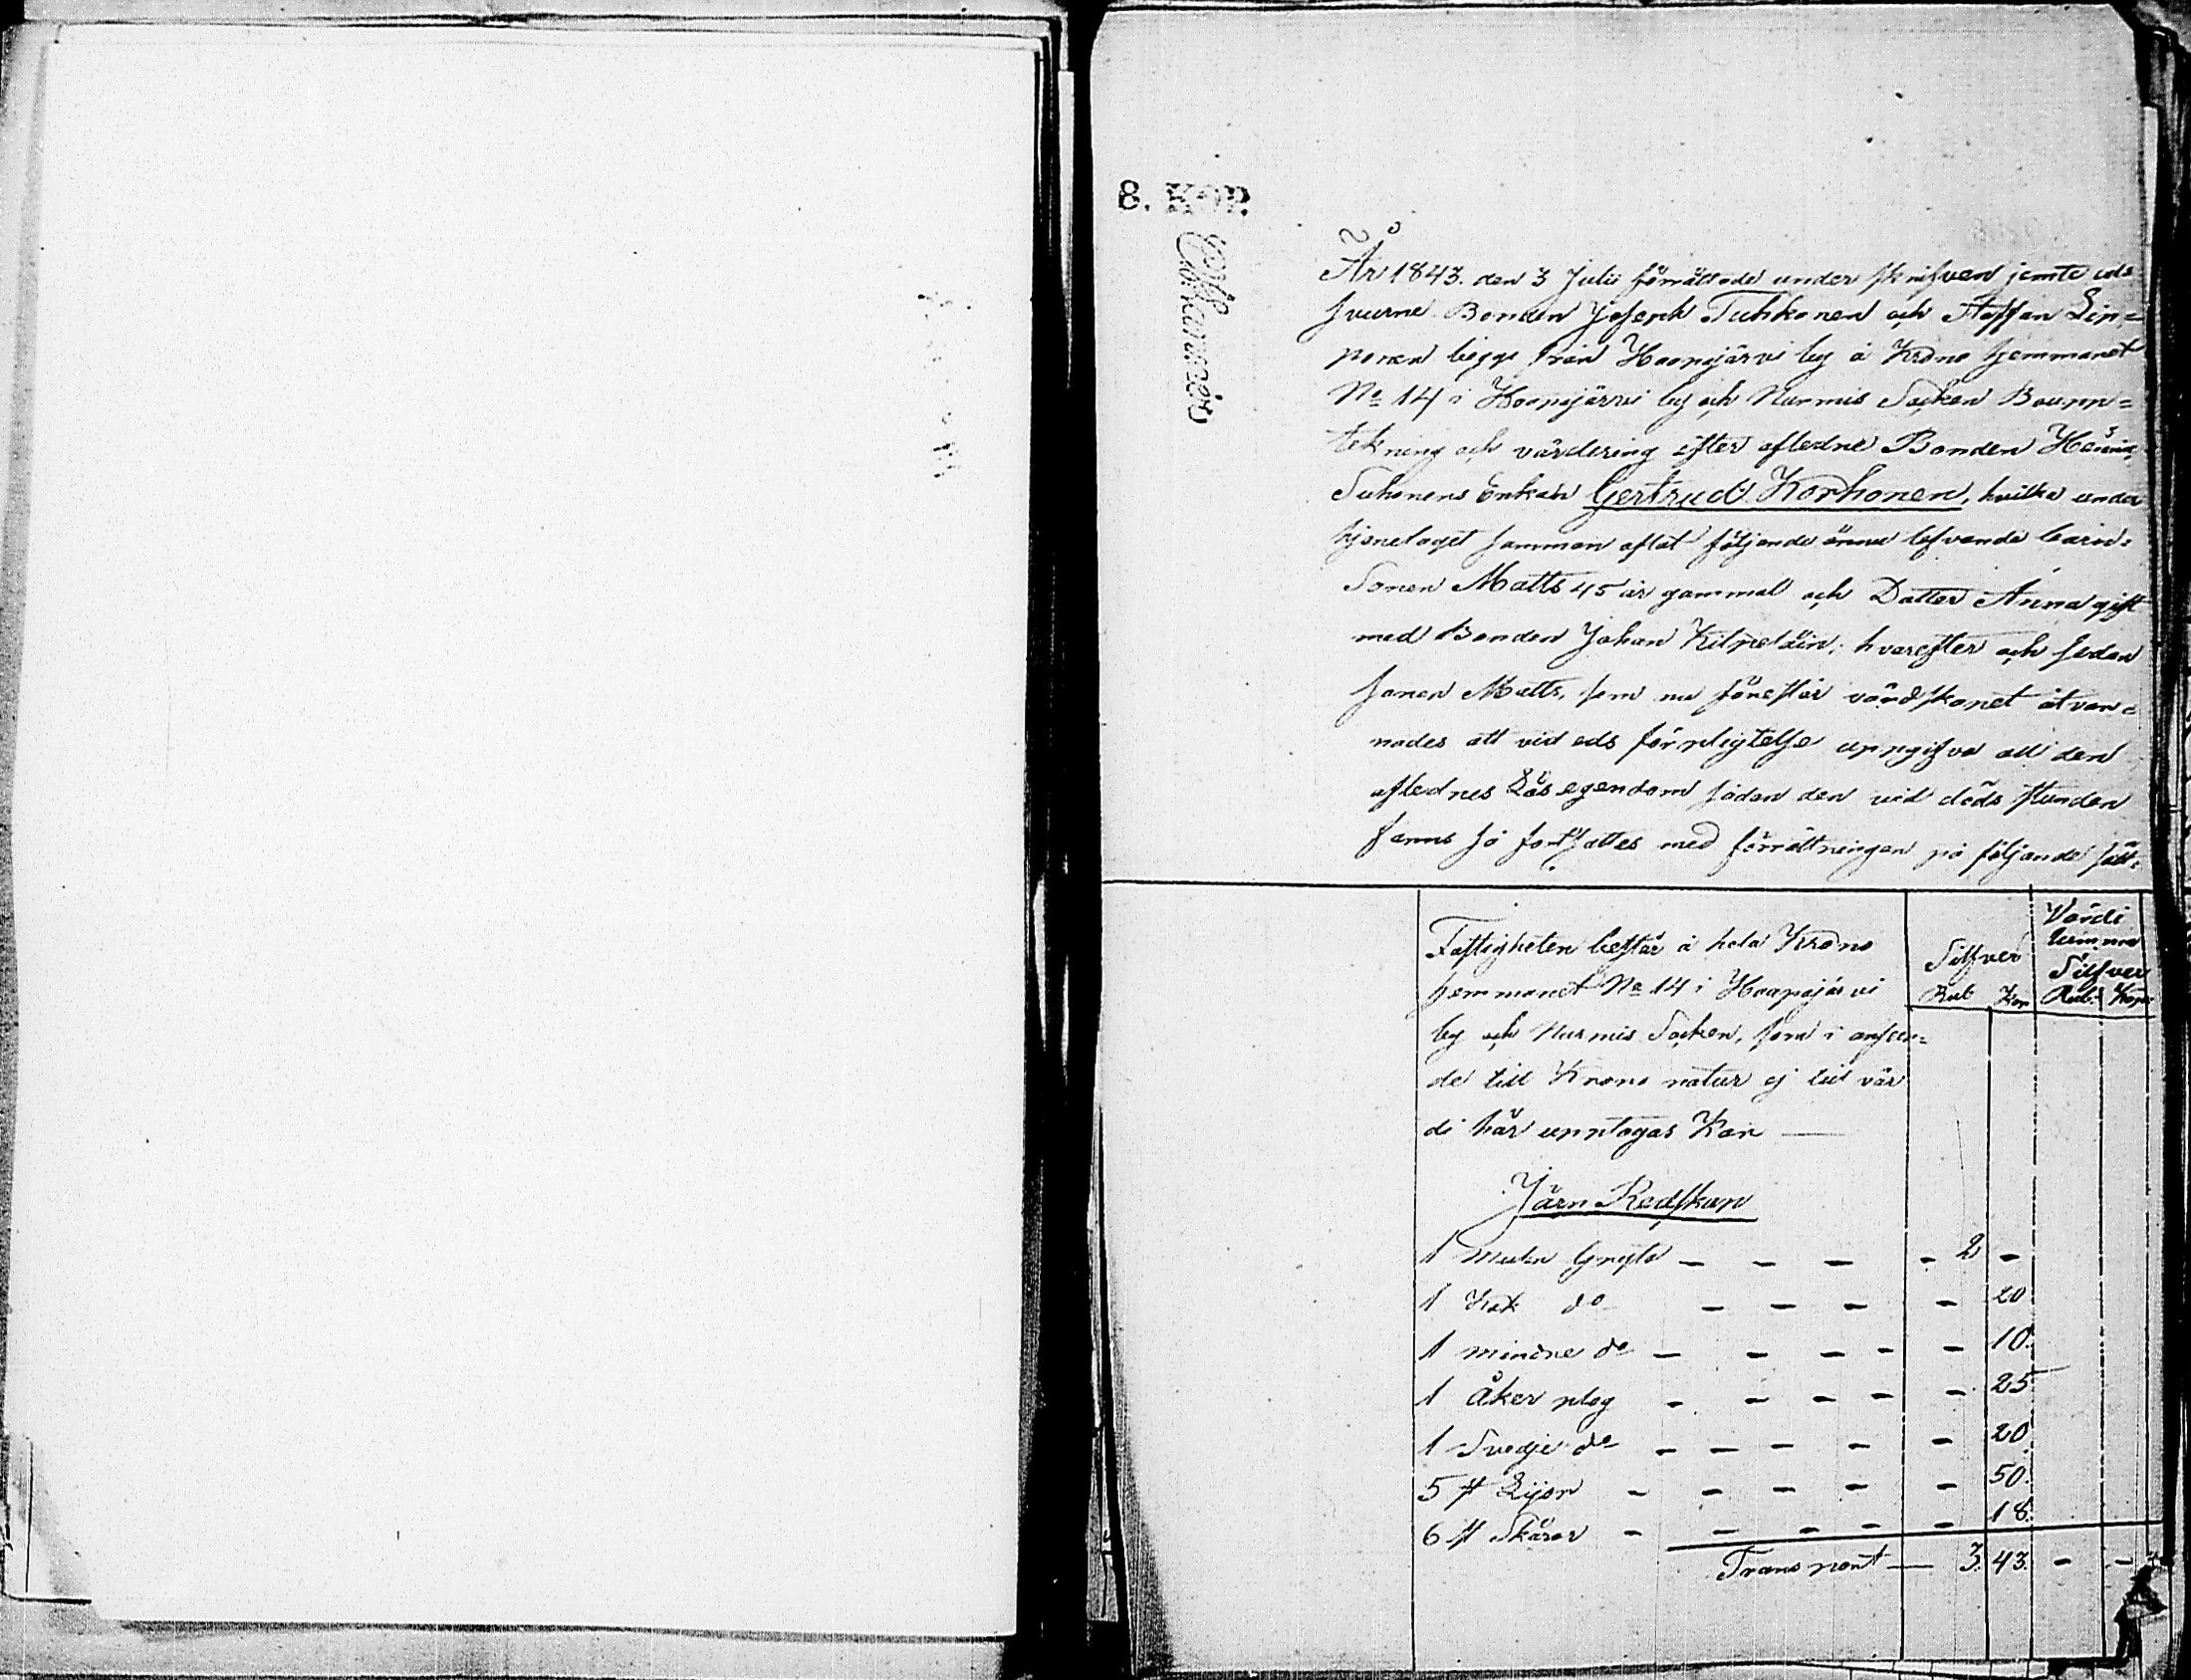 8. KOP.
År 1843. den 3 Julii förrättade underskrifven jemte eds
svurne Bonden Joseph Tuhkonen och Staffan Lip=
ponen begge från Haapajärvi by å Krono Hemmanet
No 14 i Haapajärvi by och Nurmis Socken Boupp=
tekning och värdering efter aflidne Bonden
Suhonens Enkan Gertrud Korhonen, hvilka under
hjonelaget samman aflat följande ännu lefvande barn:
Sonen Matts 45 år gammal och Dotter Anna gift
med Bonden Johan Kilpeläin; hvarefter och sedan
sonen Matts, som nu förestår värdskapet åtvar=
nades att vid eds förpligtelse uppgifva all den
aflednes Lösegendom sådan den vid döds stunden
fanns så fortsattes med förrättningen på följande sätt:
Fastigheten består å hela Krono
hemmanet No 14 i Haapajärvi
by och Nurmis Socken, som i anseen=
de till Krono natur ej till vär
di här upptagas Kan —
Silfver
Rub Kop
Värdi
Silfver
Rub. Kop.
Järn Redskap
1 Mur Gryta — — — - 2 -
1 Kok do — — — — 20
1 mindre do — — — - — 10.
1 åker plog - — — — — 25
1 Svedje do — — — — — 20
5 st Lijor — — — — — 50.
6 st Skäror — — — — — 18.
Transport — 3. 43. - -